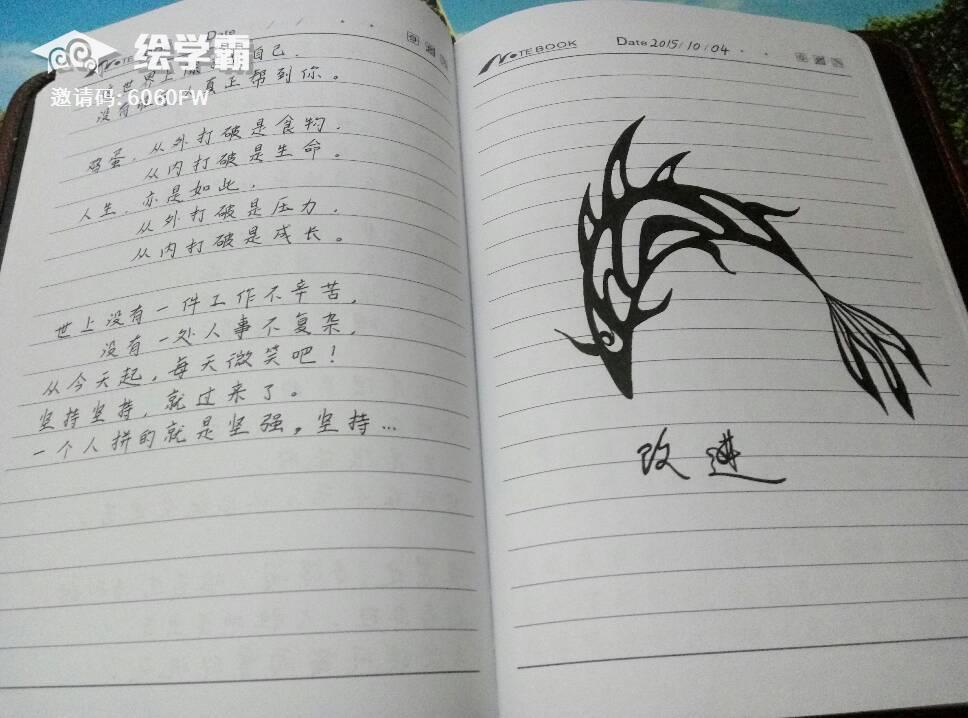 绘学霸
邀请码: 6060FW
Date
世界上 自己.
没有 真正帮到你。
鸡蛋.从外打破是食物.
从内打破是生命。
人生.亦是如此.
从外打破是压力.
从内打破是成长。
世上没有一件工作不辛苦.
没有一处人事不复杂.
从今天起,每天微笑吧!
坚持坚持.就过来了。
一个人拼的就是坚强,坚持...
NOTEBOOK
Date 2015/10/04
改进